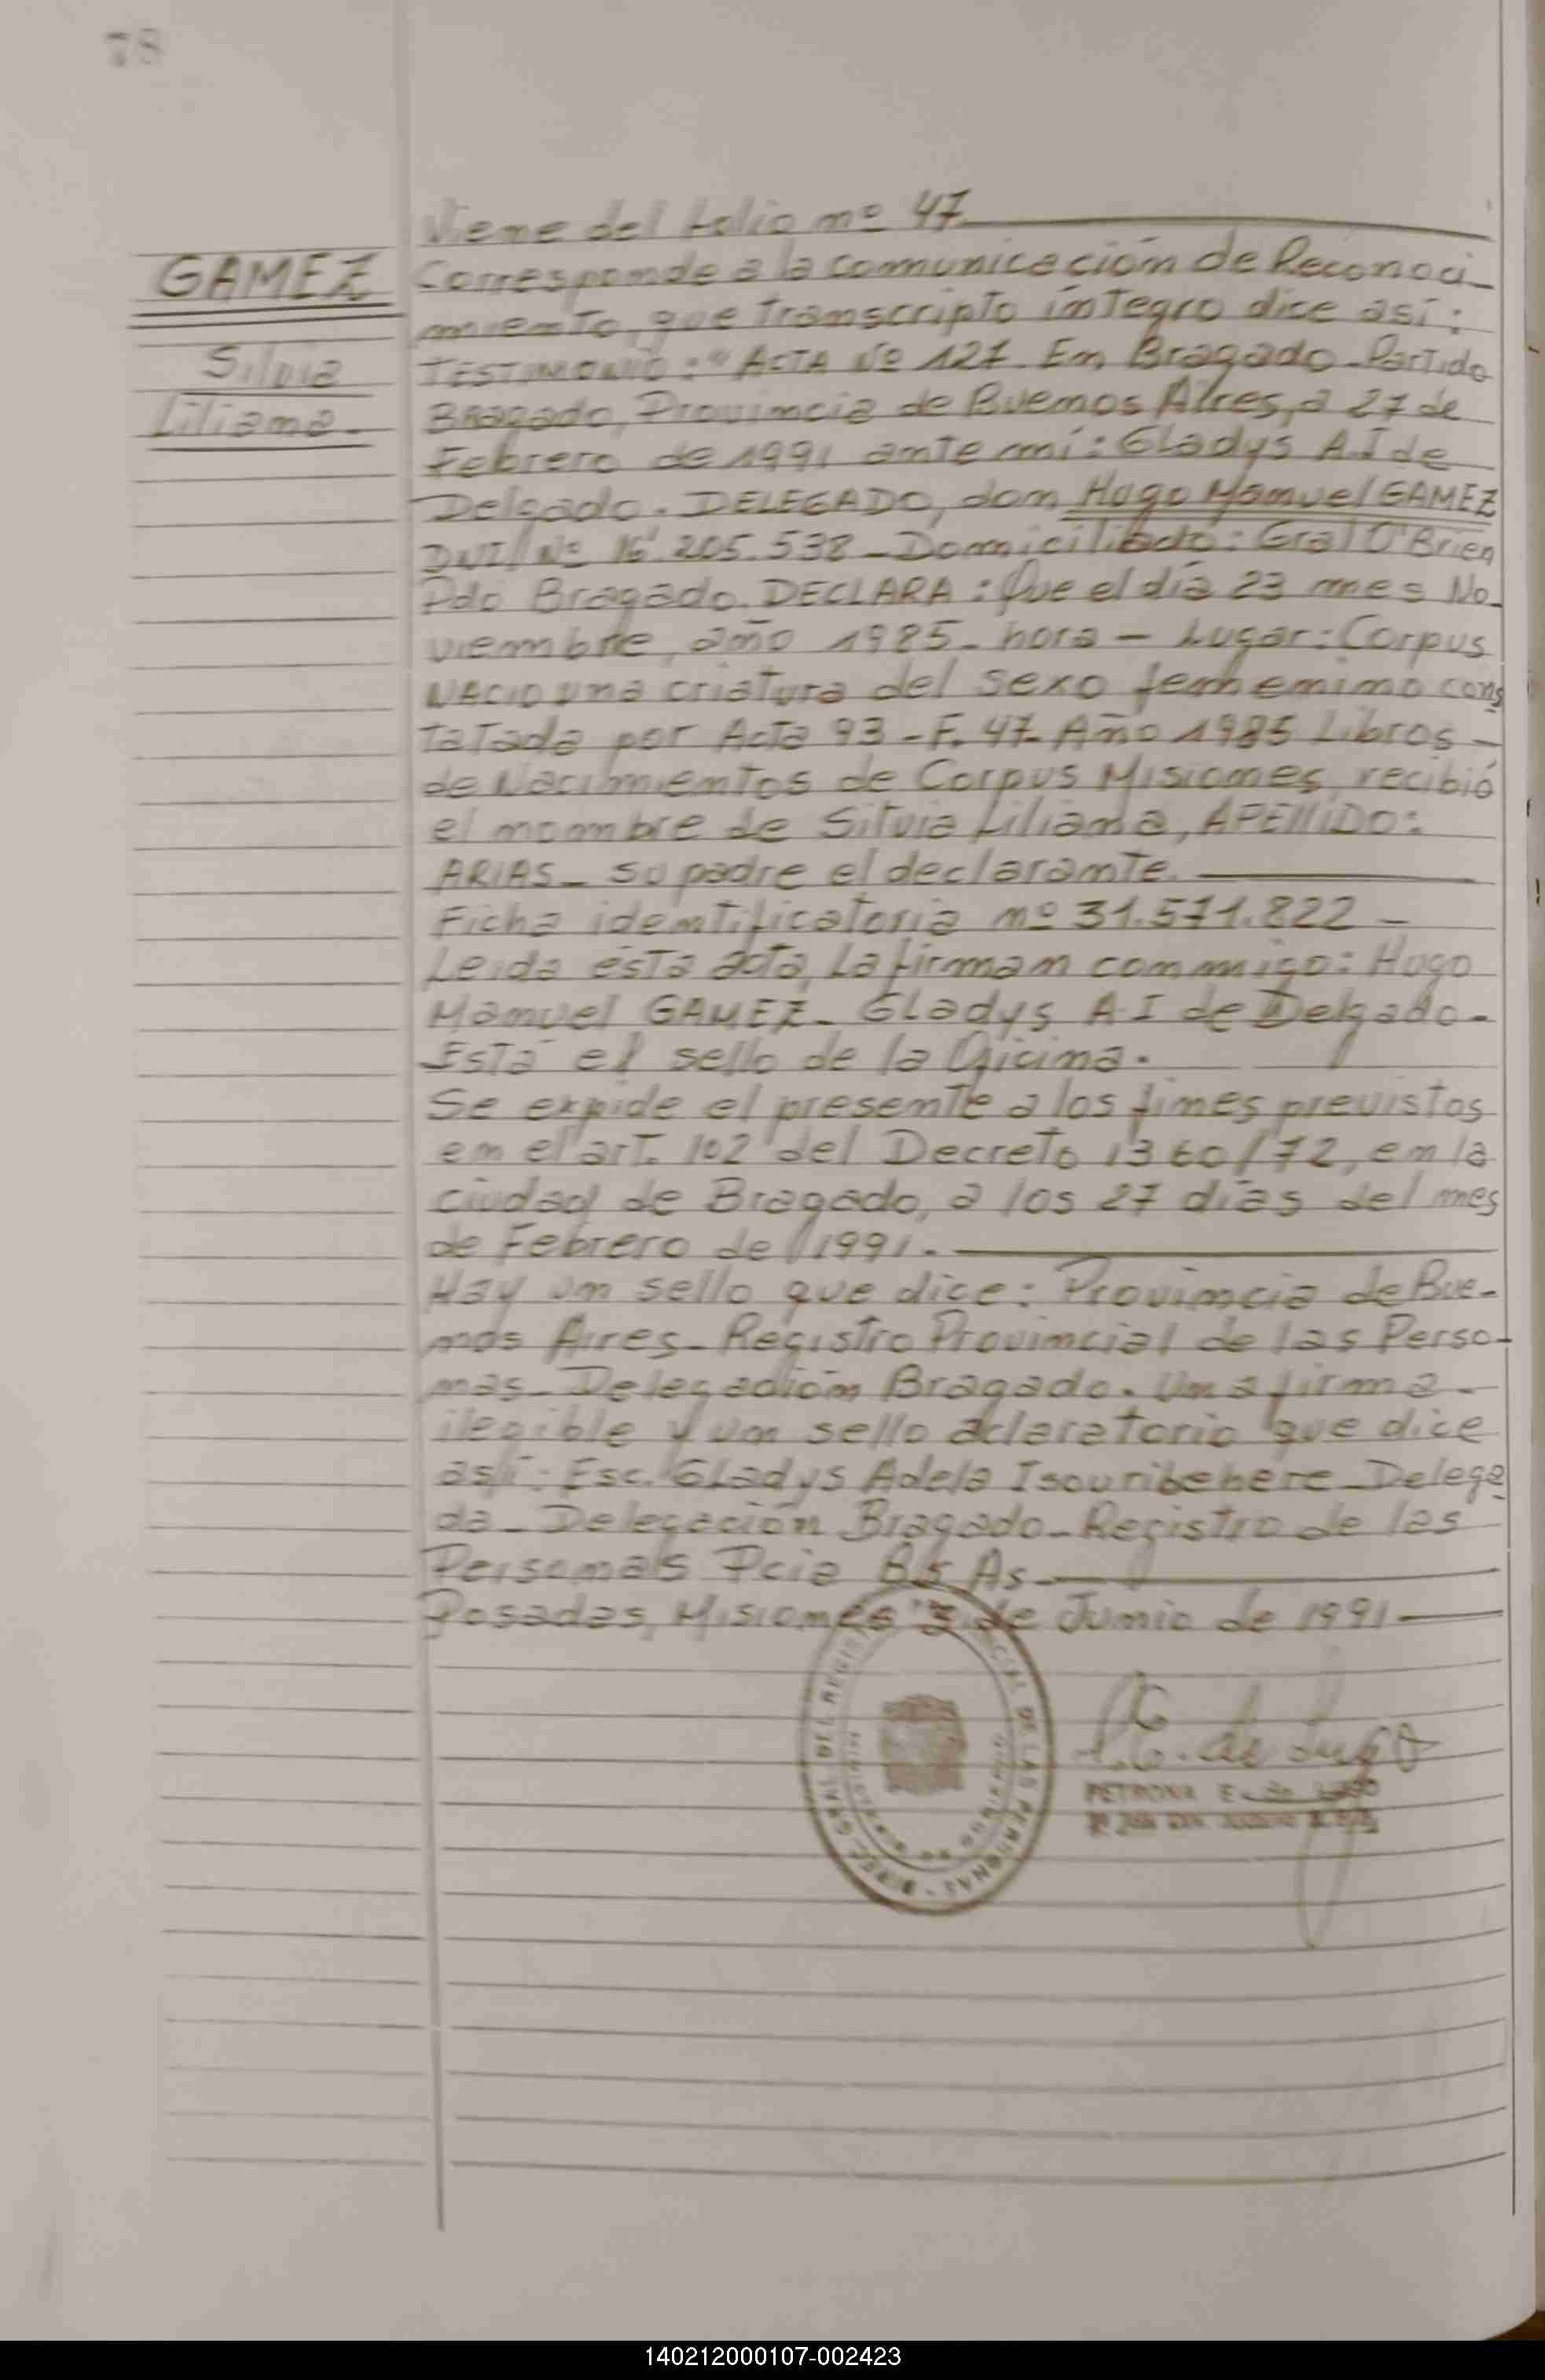 78
Viene del folio nº 47
GAMEZ
Silvia
Liliana.-
Corresponde a la comunicación de Reconoci_
miento, que transcripto integro dice así:
TESTIMONIO: "ACTA Nº 127. En Bragado - Partido
BRAGADO, Provincia de Buenos Aires, a 27 de
Febrero de 1991 ante mí: Gladys A.I de
Delgado. DELEGADO, don Hugo Manuel GAMEZ
DNI Nº 16.205.538 - Domiciliado: Gral O'Brien
Pdo Bragado. DECLARA: Que el día 23 mes No_
viembre, año 1985 - hora - Lugar: Corpus
NACIO una criatura del sexo femhemino cons
tatada por Acta 93 - F. 47 - Año 1985 Libros -
de Nacimientos de Corpus Misiones, recibió
el noombre de Silvia Liliana, APEllIDO:
ARIAS - su padre el declarante.
Ficha identificatoria nº 31.571.822 -
Leida ésta acta, la firman conmigo: Hugo
Manuel GAMEZ - Gladys A I de Delgado.-
Está el sello de la Oficina.
Se expide el presente a los fines previstos
en el art. 102 del Decreto 1360/72, en la
ciudad de Bragado, a los 27 días del mes
de Febrero de 1991.
Hay un sello que dice: Provincia de Bue-
nos Aires - Registro Provincial de las Perso-
nas - Delegación Bragado. Una firma -
ilegible y un sello aclaratorio que dice
así: Esc. Gladys Adela Isouribehere - Delega
da - Delegación Bragado - Registro de las
Personas Pcia Bs As -
Posadas, Misiones 3 de Junio de 1991
DE LAS PERSONAS
P.E. de Lugo
PETRONA E. de LUGO
140212000107-002423